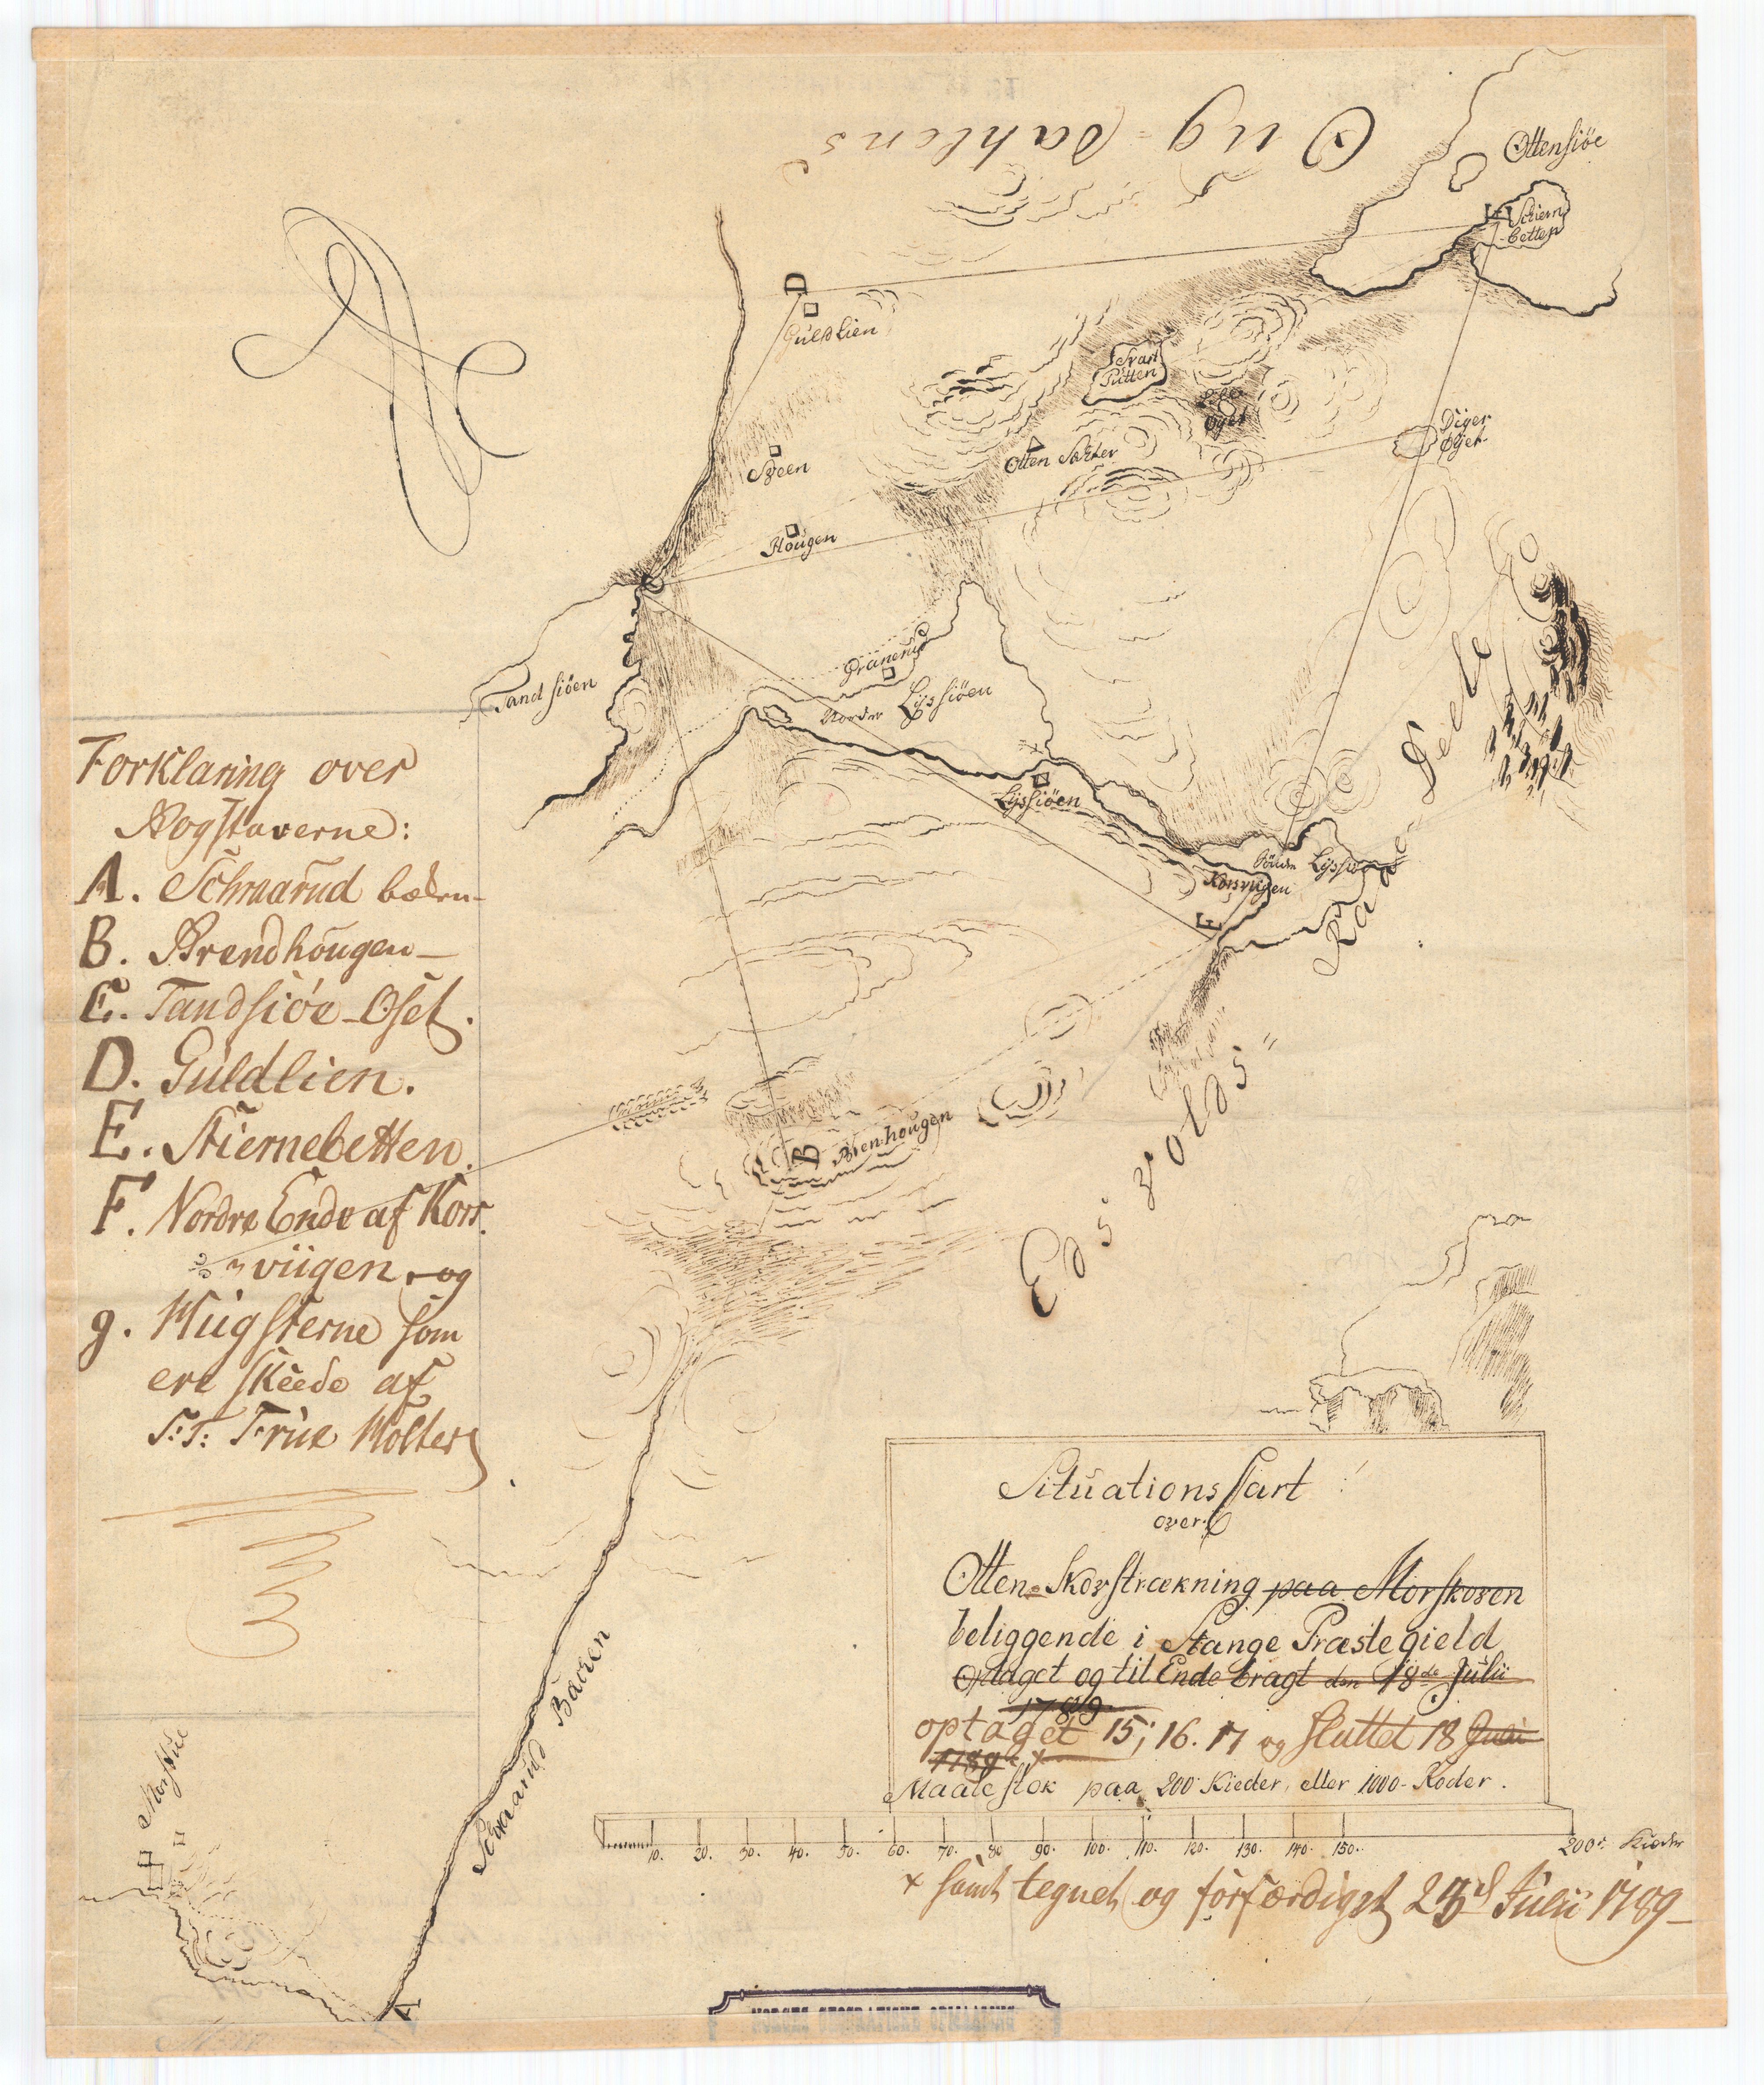 Ottensiöe
Stiern
betten
D
Guldlien
Svart
Putten
Diger
Øyet
Sveen
Otten Sæter
Hougen
Granerud
Tandsiöen
Norder Lyssiöen
Lyssiöen
Korsviigen
Deele
B
Brenhougen
Eds volds
Forklaring over
Bogstaverne:
A. Schraarud bæken
B. Brendhougen
C. Tandsiöe-Oset.
D. Guldlien.
E. Stiernebetten.
F. Nordre Ende af Kors
viigen, og
g. Hugsterne som
ere skeede af
S:T: Frue Holter
Situations Cart
over
Otten-Skovstrækning paa Morskoven
beliggende i Stange Præstegield
Optaget og til Ende bragt den 18de Julii
1789
optaget 15, 16. 17 og sluttet 18 Juli
1789 x
Maalestok paa 200 Kieder, eller 1000-Roder.
10. 20. 30. 40. 50. 60. 70. 80 90. 100. 110. 120. 130. 140. 150. 200. Kieder
x samt tegnet og forfærdiget 23d Julii 1789
Bæcken
A
NORGES GEOGRAFISKE OPMAALING